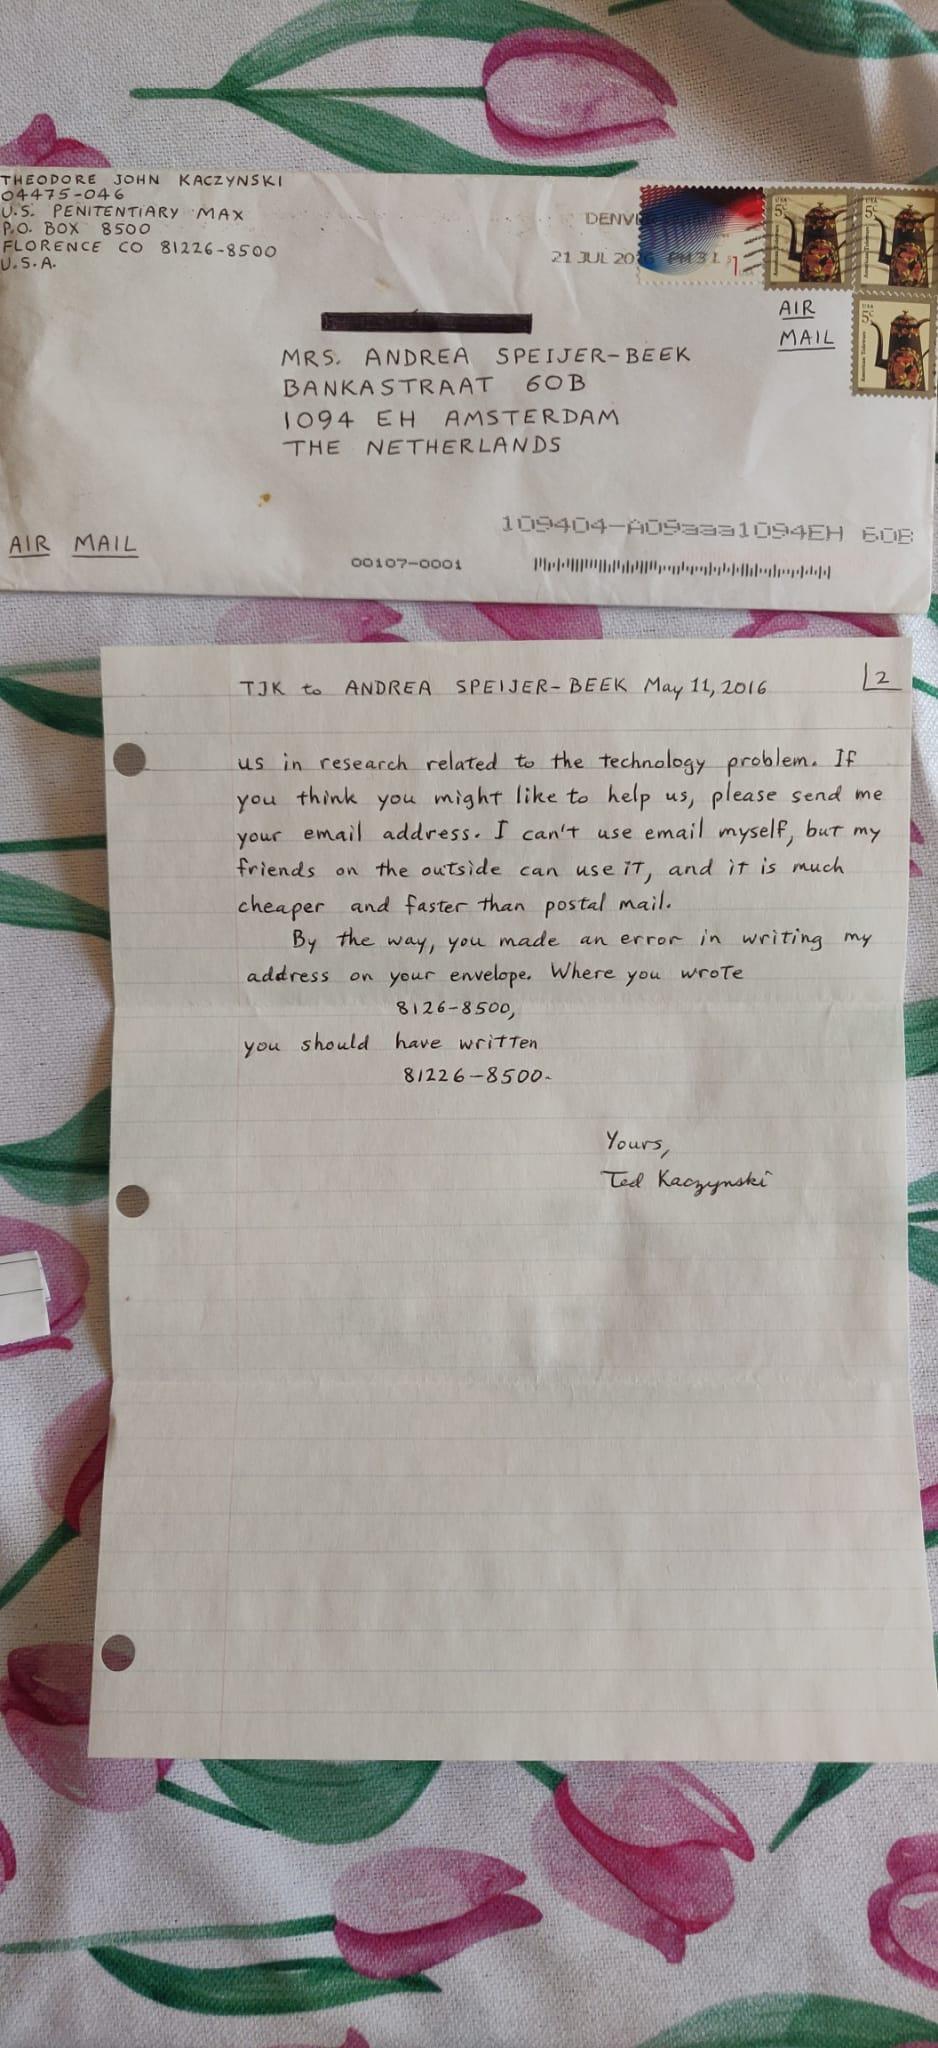 THEODORE JOHN KACZYNSKI
04475-046
U.S. PENITENTIARY MAX
P.O. BOX 8500
FLORENCE CO 81226-8500
U.S.A.
21 JUL 2016 PM 3 L
$1
USA
5¢
USA
5¢
USA
5¢
AIR
MAIL
MRS. ANDREA SPEIJER-BEEK
BANKASTRAAT 60B
1094 EH AMSTERDAM
THE NETHERLANDS
109404-A09aaa1094EH 60B
AIR MAIL
00107-0001
TJK to ANDREA SPEIJER-BEEK May 11, 2016
2
us in research related to the technology problem. If
you think you might like to help us, please send me
your email address. I can't use email myself, but my
friends on the outside can use it, and it is much
cheaper and faster than postal mail.
By the way, you made an error in writing my
address on your envelope. Where you wrote
8126-8500,
you should have written
81226-8500.
Yours,
Ted Kaczynski